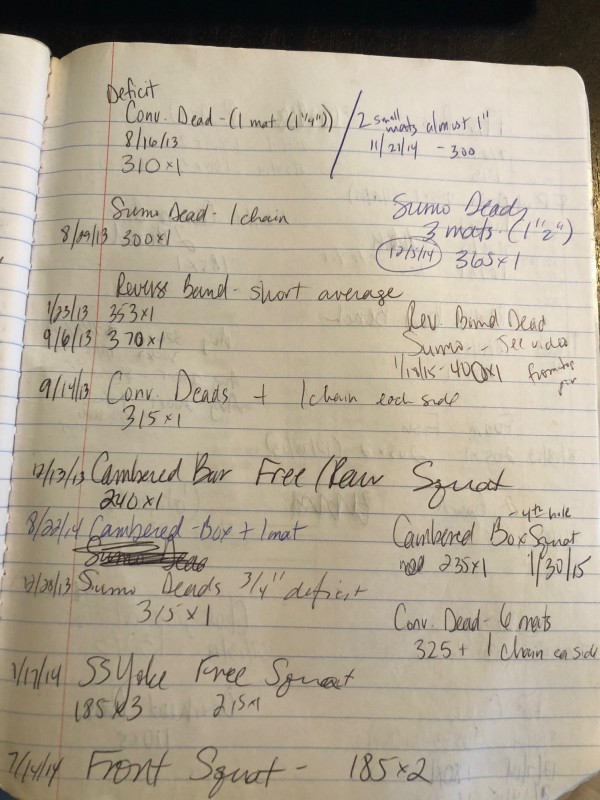 Deficit
Conv. Dead - (1 mat (1"4"))
8/16/13
310x1
2 small mats almost 1"
11/21/14 - 300
Sumo Dead - 1 chain
8/29/13 300x1
Sumo Deads
3 mats. (1"2")
12/5/14 365x1
Reverse band - short average
1/23/13 353x1
9/6/13 370x1
Rev. Band Dead
Sumo - See video
1/18/15 - 400x1 from top
9/14/13 Conv. Deads + 1 chain each side
315x1
12/13/13 Cambered Bar Free/Raw Squat
240x1
8/22/14 Cambered - Box + 1 mat
Cambered Box Squat - 4th hole
235x1 1/30/15
12/28/13 Sumo Deads 3/4" deficit
315x1
Conv. Dead - 6 mats
325 + 1 chain ea side
1/17/14 SS Yoke Free Squat
185x3 215x1
7/14/14 Front Squat - 185x2